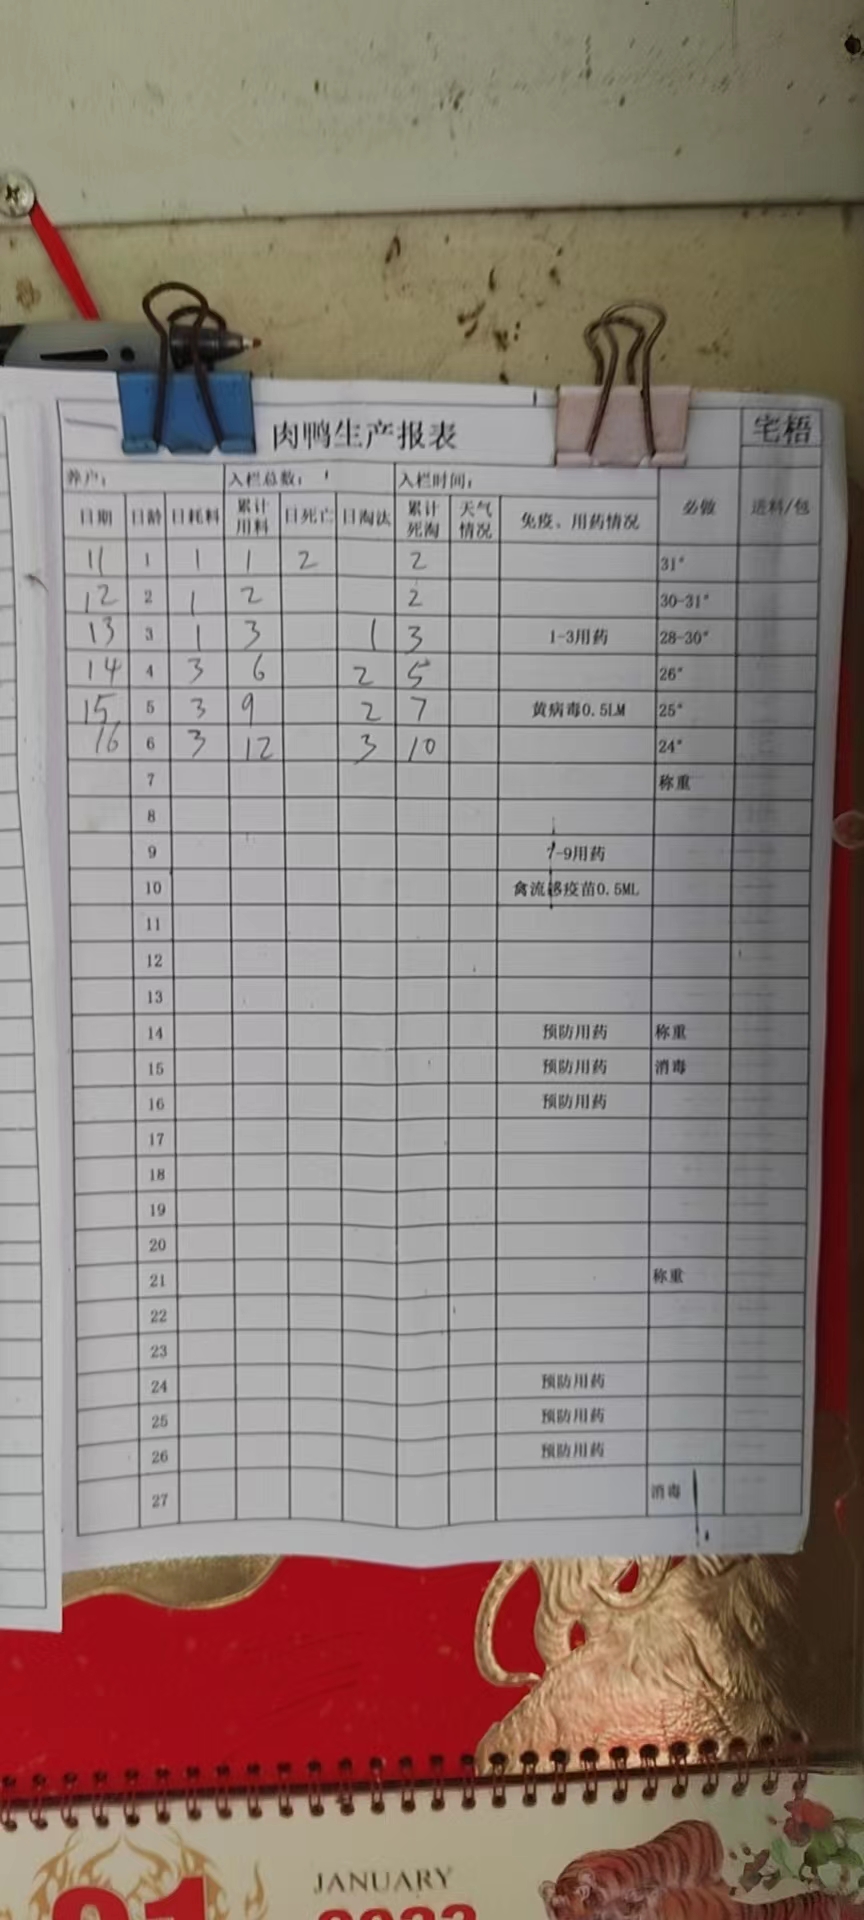 肉鸭生产报表 宅梧
养户： 入栏总数： 入栏时间：
日期 日龄 日耗料 累计用料 日死亡 日淘汰 累计死淘 天气情况 免疫、用药情况 必做 进料/包
11 1 1 1 2 2 31°
12 2 1 2 2 30-31°
13 3 1 3 1 3 1-3用药 28-30°
14 4 3 6 2 5 26°
15 5 3 9 2 7 黄病毒0.5LM 25°
16 6 3 12 3 10 24°
7 称重
8
9 7-9用药
10 禽流移疫苗0.5ML
11
12
13
14 预防用药 称重
15 预防用药 消毒
16 预防用药
17
18
19
20
21 称重
22
23
24 预防用药
25 预防用药
26 预防用药
27 消毒
JANUARY